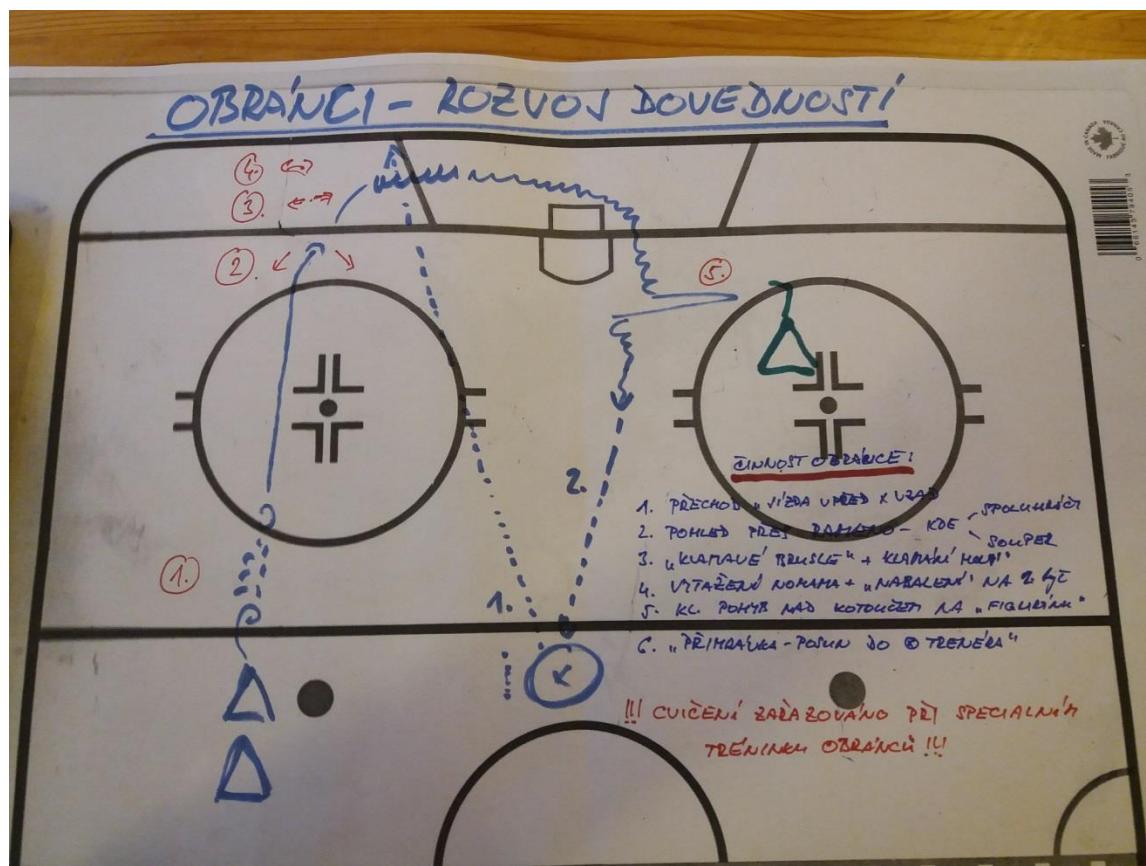 OBRÁNCI - ROZVOJ DOVEDNOSTÍ
MADE IN CANADA
4.
3.
2.
5.
1.
1.
2.
K
ČINNOST OBRÁNCE:
1. PŘECHOD "JÍZDA VPŘED X VZAD
2. POHLED PŘES RAMENO - KDE SPOLUHRÁČI
SOUPEŘ
3. "KLAMAVÉ BRUSLE" + KLAMÁNÍ HOLÍ"
4. VYTAŽENÍ NOHAMA + "NABALENÍ" NA 2. TYČ
5. KL. POHYB NAD KOTOUČEM NA "FIGURÍNU"
6. "PŘIHRÁVKA - POSUN DO TRENÉRA"
!!! CVIČENÍ ZAŘAZOVÁNO PŘI SPECIALNÍM
TRÉNINKU OBRÁNCŮ !!!